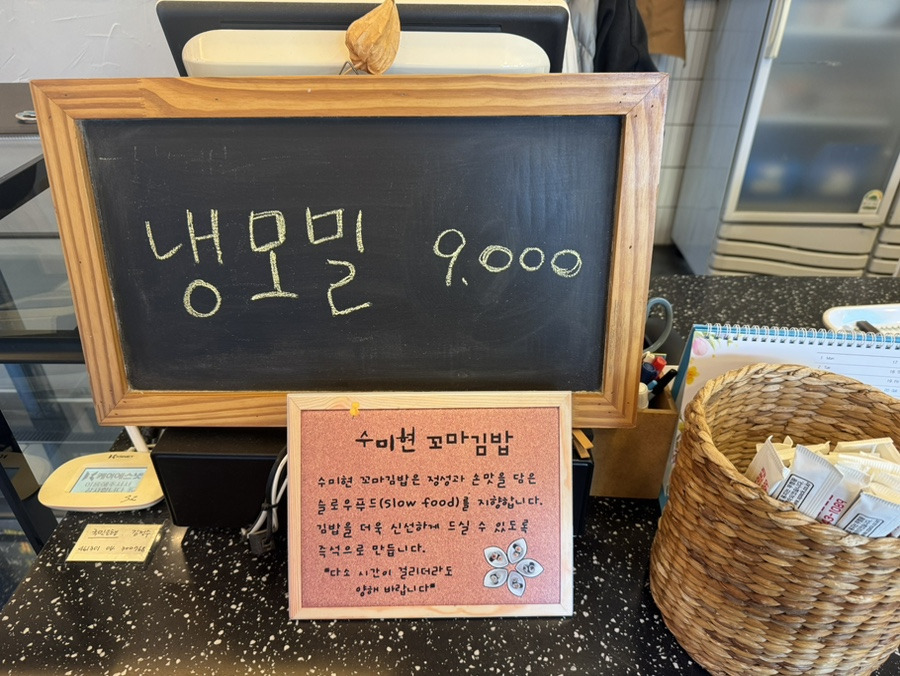 냉모밀 9.000
수미현 꼬마김밥
수미현 꼬마김밥은 정성과 손맛을 담은
슬로우푸드(Slow food)를 지향합니다.
김밥을 더욱 신선하게 드실 수 있도록
즉석으로 만듭니다.
"다소 시간이 걸리더라도
양해 바랍니다"